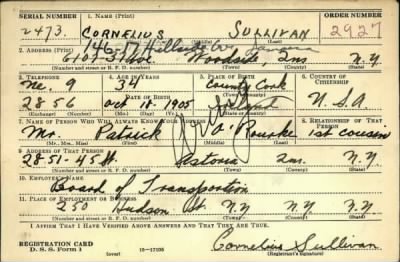 SERIAL NUMBER 1. NAME (Print) ORDER NUMBER
2473. CORNELIUS SULLIVAN 2927
(First) (Middle) (Last)
146-17 Hillside Av Jamaica
2. ADDRESS (Print)
Woodside, Qns N.Y
(Number and street or R. F. D. number) (Town) (County) (State)
3. TELEPHONE 4. AGE IN YEARS 5. PLACE OF BIRTH 6. COUNTRY OF CITIZENSHIP
Ne. 9 34 County Cork
DATE OF BIRTH (Town or county)
2856 Oct 18, 1905 U.S.A
(Exchange) (Number) (Mo.) (Day) (Yr.) (State or country)
7. NAME OF PERSON WHO WILL ALWAYS KNOW YOUR ADDRESS 8. RELATIONSHIP OF THAT PERSON
Mr. Patrick O'Rourke 1st cousin
(Mr., Mrs., Miss) (First) (Middle) (Last)
9. ADDRESS OF THAT PERSON
2851-45 St. Astoria Qns. N.Y
(Number and street or R. F. D. number) (Town) (County) (State)
10. EMPLOYER'S NAME
Board of Transportation
11. PLACE OF EMPLOYMENT OR BUSINESS
250 Hudson St N.Y N.Y N.Y
(Number and street or R. F. D. number) (Town) (County) (State)
I AFFIRM THAT I HAVE VERIFIED ABOVE ANSWERS AND THAT THEY ARE TRUE.
REGISTRATION CARD
D. S. S. Form 1 (over) 16-17105 Cornelius Sullivan
(Registrant's signature)